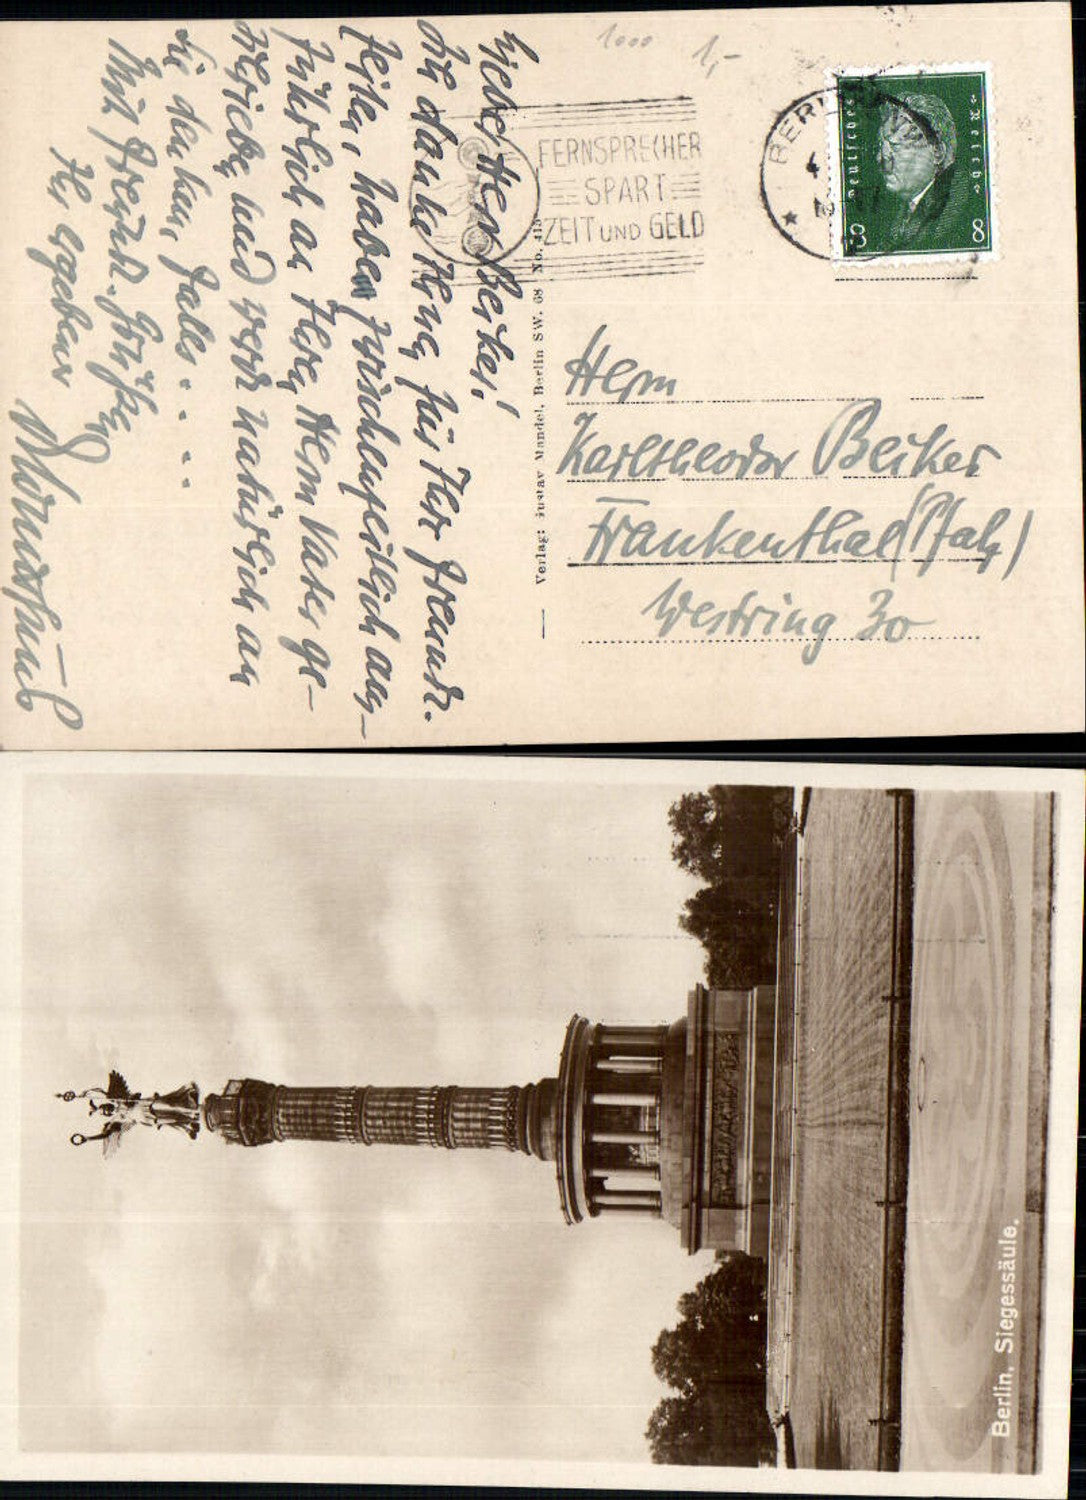 1000
1,-
Lieber Herr Beiker!
Ich danke Ihnen für Ihre freundl.
Zeilen, habe inzwischen
an Ihren Herrn Vater ge-
und werde natürlich an
Sie denken, falls . . . .
Mit freundl. Grüßen
Ihr ergebener
FERNSPRECHER
SPART
ZEIT UND GELD
BERLIN
Deutsches Reich
8 8
Verlag: Gustav Mandel, Berlin SW. 68 No. 415
Herrn
Karltheodor Beiker
Frankenthal (Pfalz)
Westring 30
Berlin. Siegessäule.